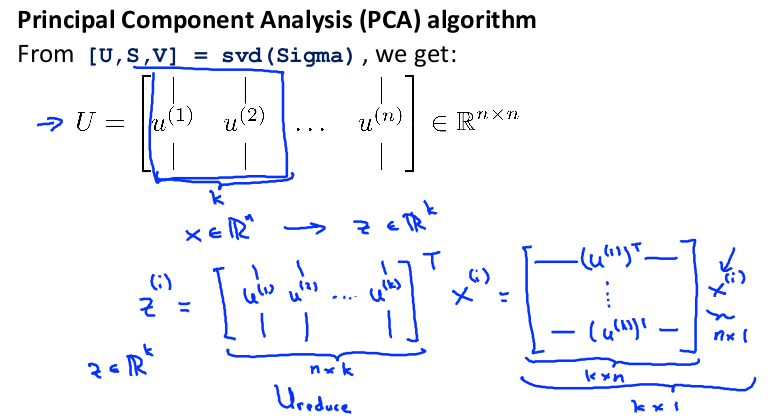 Principal Component Analysis (PCA) algorithm
From [U,S,V] = svd(Sigma) , we get:
→ U = [ u^(1) u^(2) … u^(n) ] ∈ ℝ^{n×n}
k
x ∈ ℝ^n → z ∈ ℝ^k
z^(i) = [ u^(1) u^(2) ... u^(k) ]^T x^(i) = [ —(u^(1))^T— ⋮ —(u^(k))^T— ] x^(i)
n×1
z ∈ ℝ^k
n×k
k×n
Ureduce
k×1